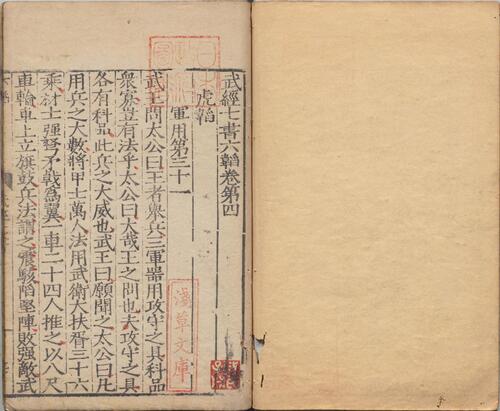 武經七書六韜卷第四
虎韜
軍用第三十一
武王問太公曰王者舉兵三軍器用攻守之具科品
衆寡豈有法乎太公曰大哉王之問也夫攻守之具
各有科品此兵之大威也武王曰願聞之太公曰凡
用兵之大數將甲士萬人法用武衛大扶胥三十六
乘材士强弩矛戟爲翼一車二十四人推之以八尺
車輪車上立旗鼓兵法謂之震駭陷堅陣敗强敵武
淺草文庫